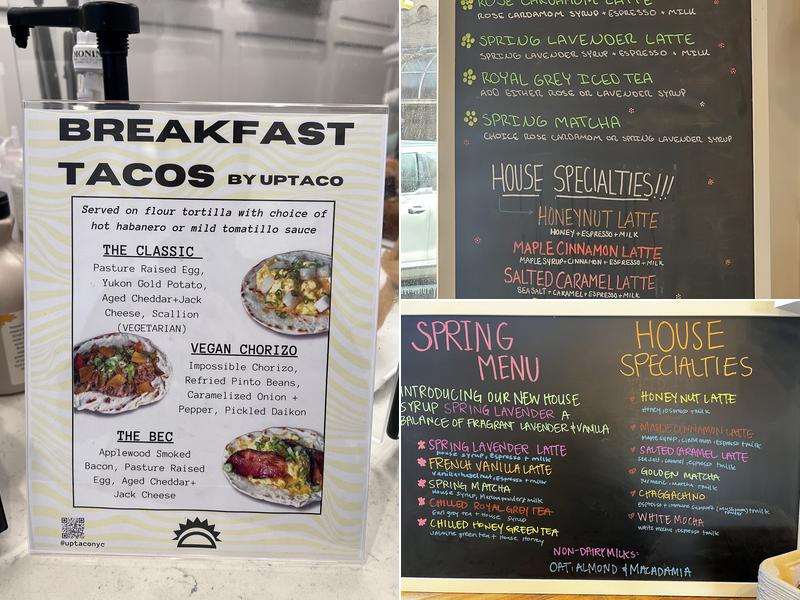 MONIN
BREAKFAST
TACOS BY UPTACO
Served on flour tortilla with choice of
hot habanero or mild tomatillo sauce
THE CLASSIC
Pasture Raised Egg,
Yukon Gold Potato,
Aged Cheddar+Jack
Cheese, Scallion
(VEGETARIAN)
VEGAN CHORIZO
Impossible Chorizo,
Refried Pinto Beans,
Caramelized Onion +
Pepper, Pickled Daikon
THE BEC
Applewood Smoked
Bacon, Pasture Raised
Egg, Aged Cheddar+
Jack Cheese
@uptaconyc
ROSE CARDAMOM LATTE
ROSE CARDAMOM SYRUP + ESPRESSO + MILK
SPRING LAVENDER LATTE
SPRING LAVENDER SYRUP + ESPRESSO + MILK
ROYAL GREY ICED TEA
ADD EITHER ROSE OR LAVENDER SYRUP
SPRING MATCHA
CHOICE ROSE CARDAMOM OR SPRING LAVENDER SYRUP
HOUSE SPECIALTIES!!!
HONEYNUT LATTE
HONEY + ESPRESSO + MILK
MAPLE CINNAMON LATTE
MAPLE SYRUP + CINNAMON + ESPRESSO + MILK
SALTED CARAMEL LATTE
SEA SALT + CARAMEL + ESPRESSO + MILK
SPRING
MENU
INTRODUCING OUR NEW HOUSE
SYRUP SPRING LAVENDER A
BALANCE OF FRAGRANT LAVENDER & VANILLA
SPRING LAVENDER LATTE
house syrup, espresso + milk
FRENCH VANILLA LATTE
vanilla + hazelnut, espresso + milk
SPRING MATCHA
House syrup, Matcha powder & milk
CHILLED ROYAL GREY TEA
Earl grey tea + house syrup
CHILLED HONEY GREEN TEA
Jasmine green tea + House Honey
HOUSE
SPECIALTIES
HONEY NUT LATTE
Honey, espresso + milk
MAPLE CINNAMON LATTE
Maple syrup, cinnamon, espresso + milk
SALTED CARAMEL LATTE
sea salt, caramel, espresso + milk
GOLDEN MATCHA
Turmeric, matcha + milk
CHAGGACHINO
Espresso + immune support (mushroom) + milk
powder
WHITE MOCHA
white mocha, espresso + milk
NON-DAIRY MILKS:
OAT, ALMOND & MACADAMIA